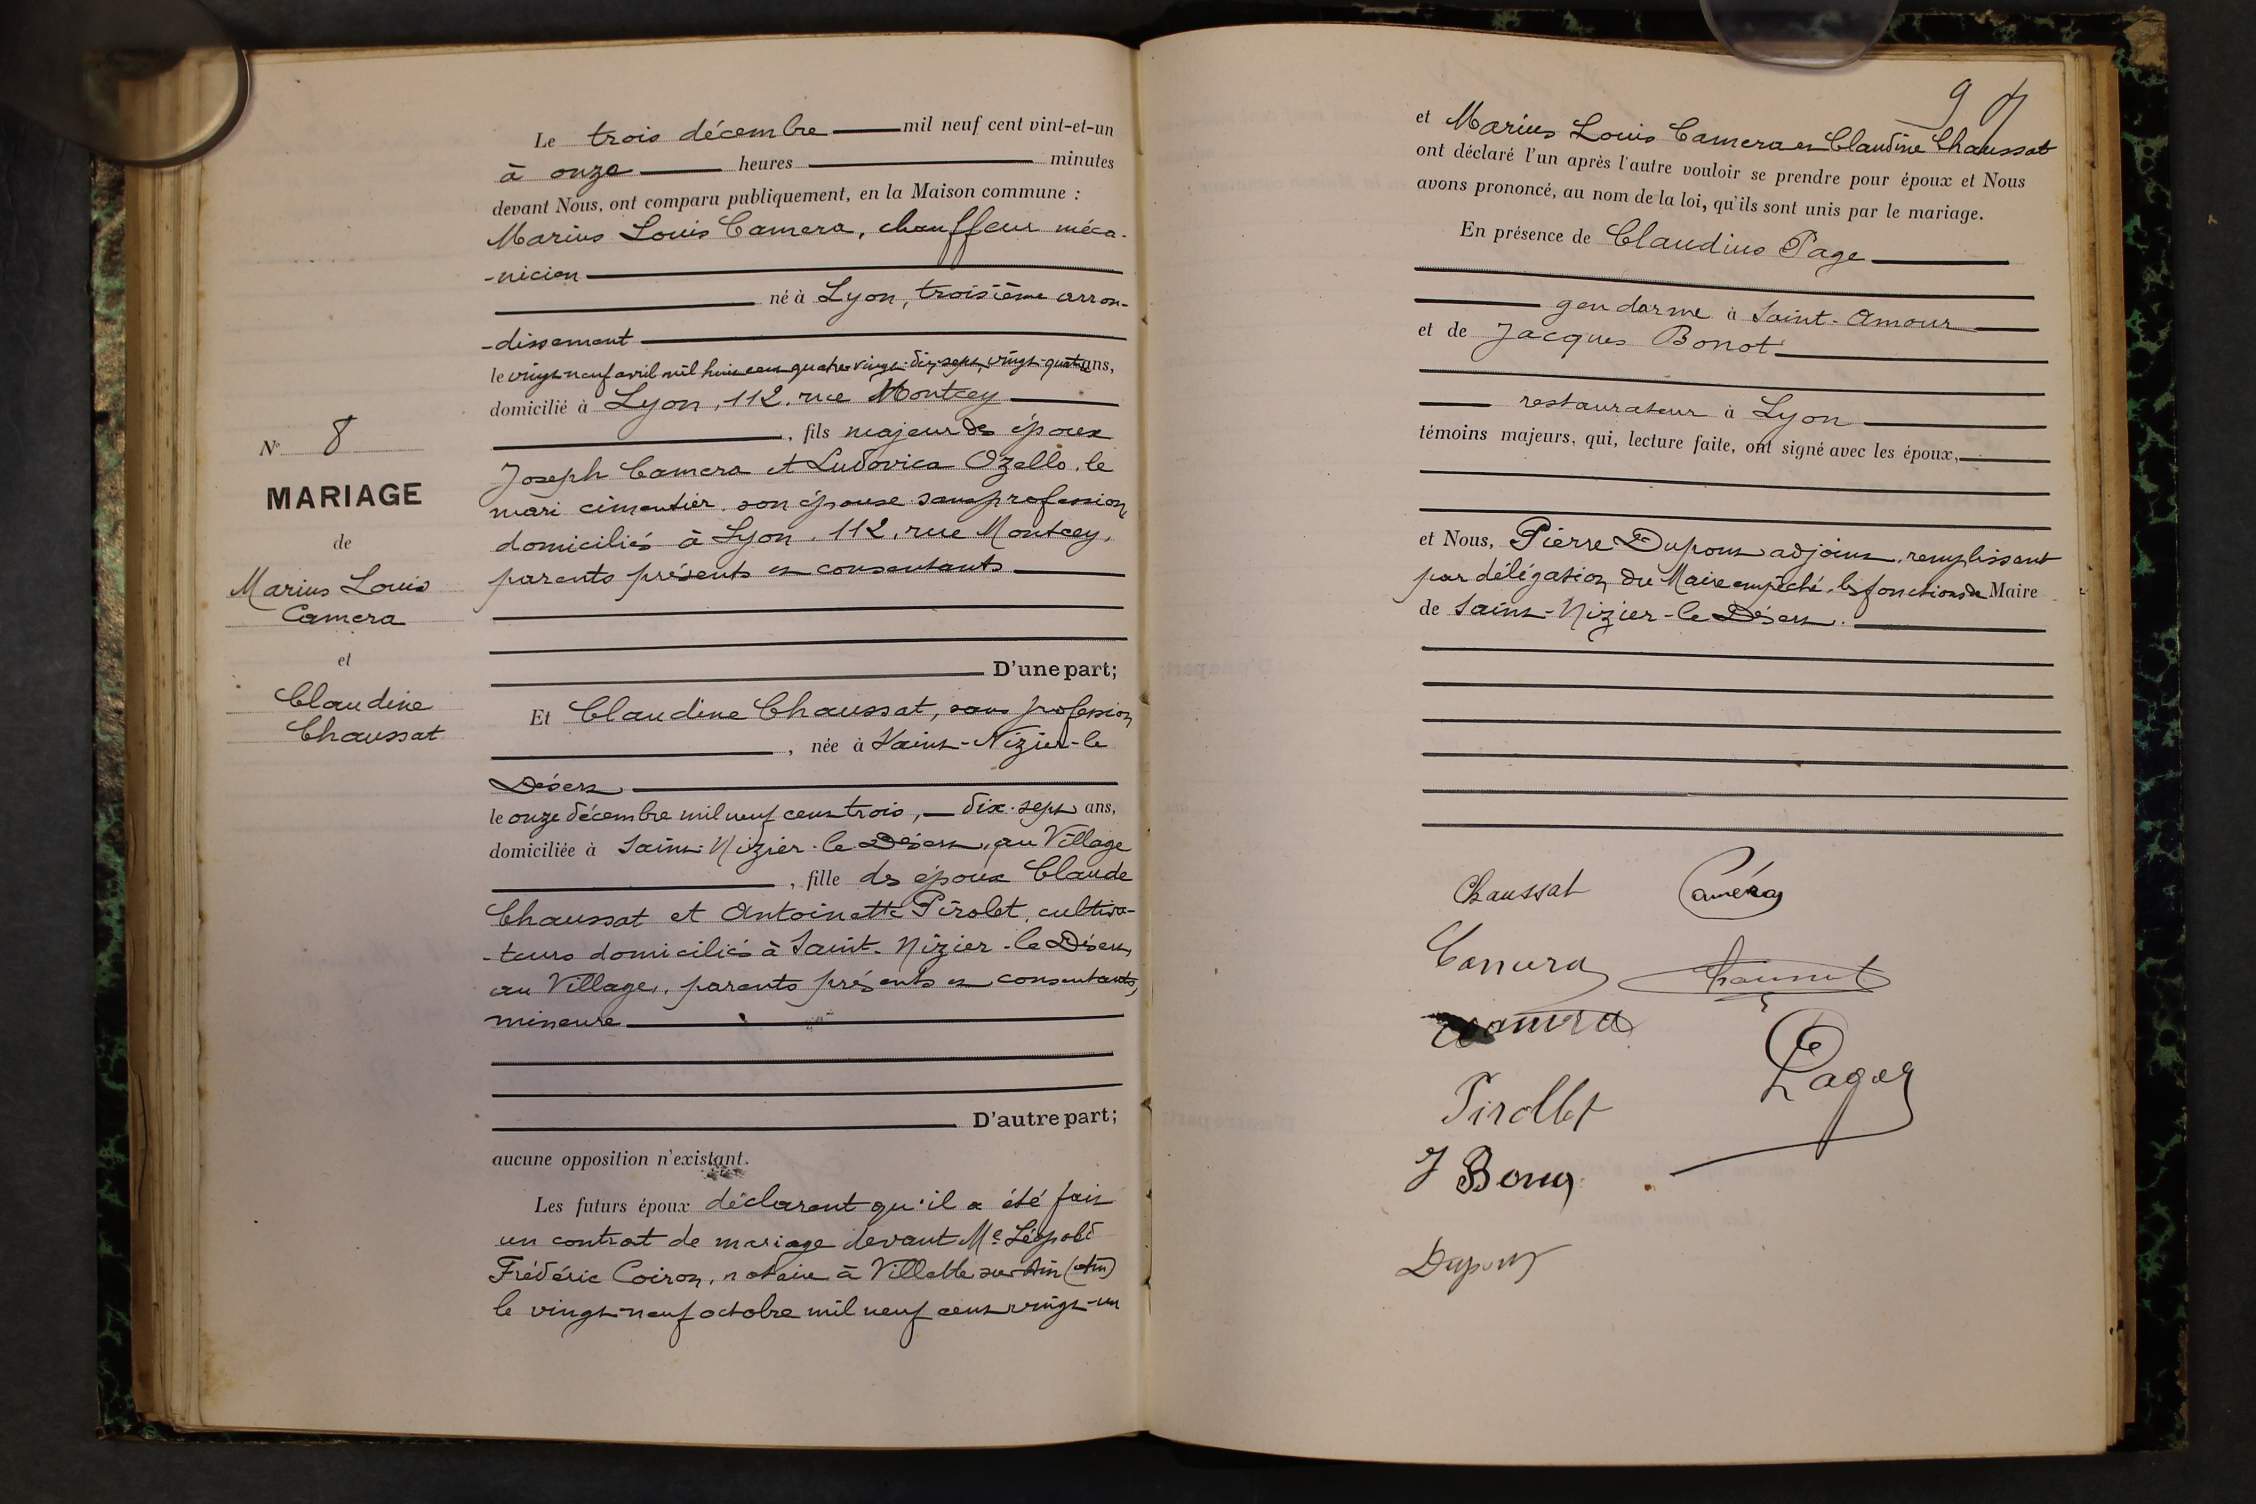 N° 8
MARIAGE
de
Marius Louis
Camera
et
Claudine
Chaussat
Le trois décembre mil neuf cent vint-et-un
à onze heures minutes
devant Nous, ont comparu publiquement, en la Maison commune :
Marius Louis Camera, chauffeur méca-
-nicien
né à Lyon, troisième arron-
-dissement
le vingt-neuf avril mil huit cent quatre-vingt-dix-sept, vingt-quatre ans,
domicilié à Lyon, 112, rue Montcey
, fils majeur des époux
Joseph Camera et Ludovica Ozello, le
mari cimentier, son épouse sans profession,
domiciliés à Lyon, 112, rue Montcey,
parents présents et consentants
D'une part;
Et Claudine Chaussat, sans profession
, née à Saint-Nizier-le
Désert
le onze décembre mil neuf cent trois, dix-sept ans,
domiciliée à Saint-Nizier-le-Désert, au Village
, fille des époux Claude
Chaussat et Antoinette Pirolet, cultiva-
-teurs domiciliés à Saint-Nizier-le Désert,
au Village, parents présents et consentants,
mineure
D'autre part;
aucune opposition n'existant.
Les futurs époux déclarent qu'il a été fait
un contrat de mariage devant Me Léopold
Frédéric Coiron, notaire à Villette sur Ain (Ain)
le vingt-neuf octobre mil neuf cent vingt-un
9
et Marius Louis Camera et Claudine Chaussat
ont déclaré l'un après l'autre vouloir se prendre pour époux et Nous
avons prononcé, au nom de la loi, qu'ils sont unis par le mariage.
En présence de Claudius Page
gendarme à Saint-Amour
et de Jacques Bonot
restaurateur à Lyon
témoins majeurs, qui, lecture faite, ont signé avec les époux,
et Nous, Pierre Dupont adjoint, remplissant
par délégation du Maire empêché, les fonctions de Maire
de Saint-Nizier-le Désert.
Chaussat Caméra
Camera Chaussat
Camera
Page
Pirollet
J Bonot
Dupont